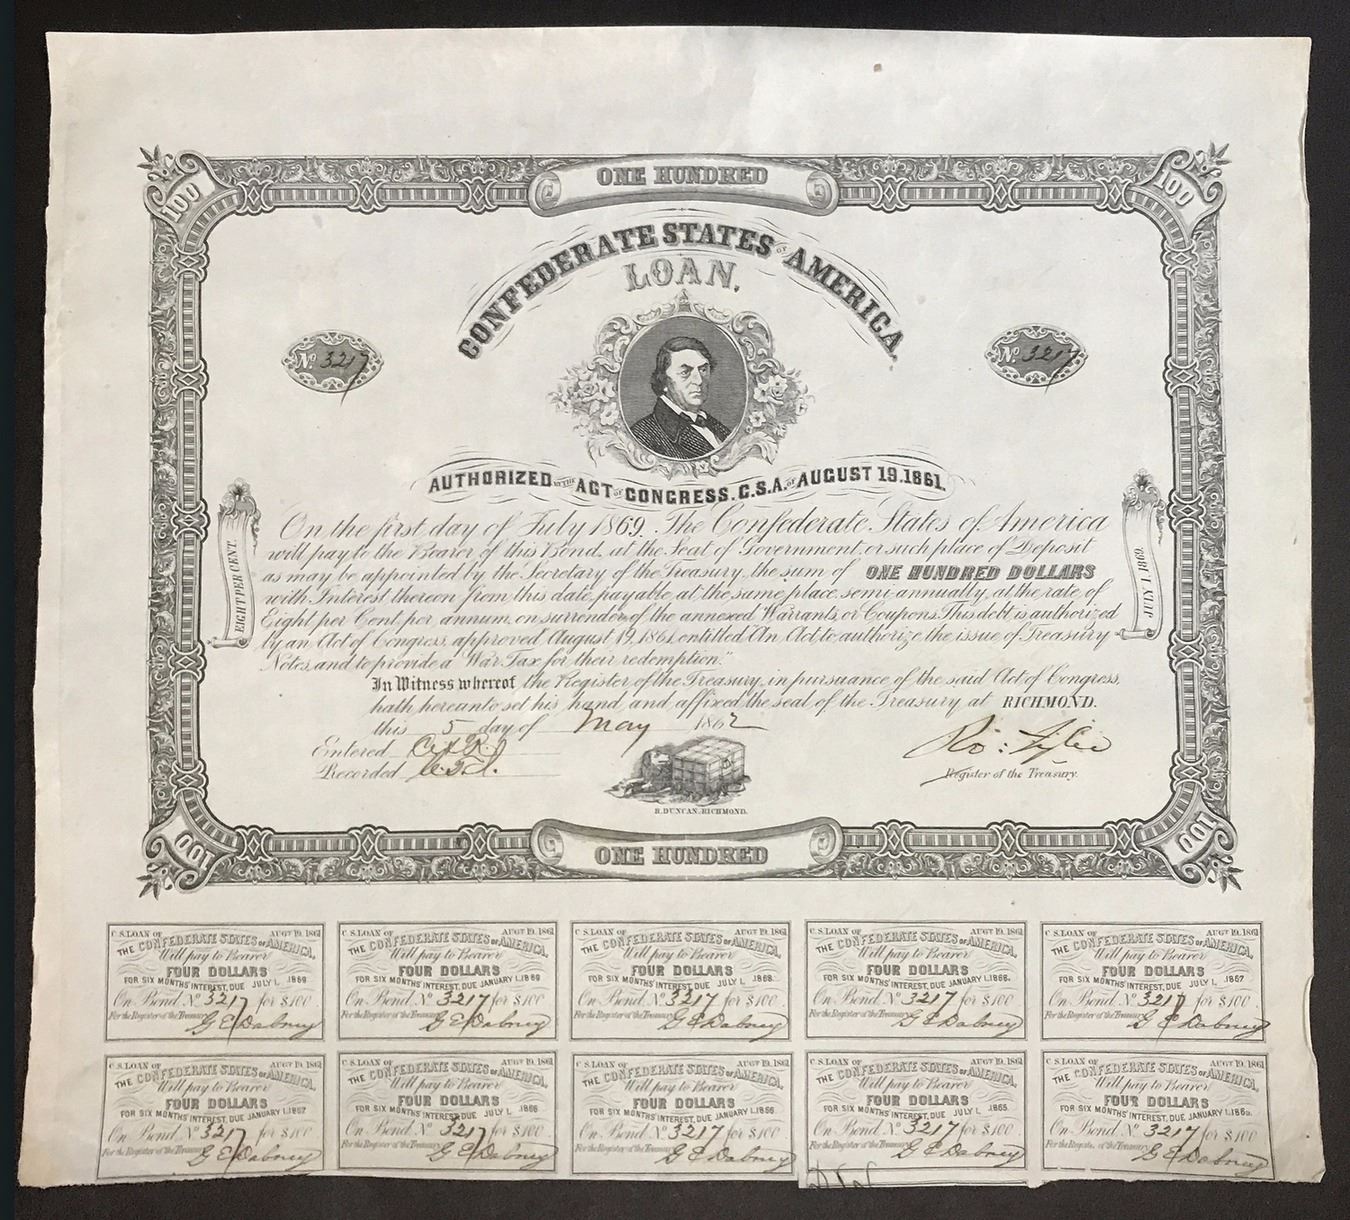 ONE HUNDRED
100
100
CONFEDERATE STATES OF AMERICA.
LOAN.
No. 3217
No. 3217
AUTHORIZED BY THE ACT OF CONGRESS. C.S.A. OF AUGUST 19.1861.
EIGHT PER CENT.
JULY 1. 1869.
On the first day of July 1869. The Confederate States of America
will pay to the Bearer of this Bond, at the Seat of Government, or such place of Deposit
as may be appointed by the Secretary of the Treasury, the sum of ONE HUNDRED DOLLARS
with Interest thereon from this date, payable at the same place, semi-annually, at the rate of
Eight per Cent. per annum, on surrender of the annexed Warrants, or Coupons. This debt is authorized
by an Act of Congress, approved August 19, 1861, entitled "An Act to authorize the issue of Treasury
Notes, and to provide a War Tax for their redemption."
In Witness whereof the Register of the Treasury, in pursuance of the said Act of Congress,
hath hereunto set his hand and affixed the seal of the Treasury at RICHMOND.
this 5 day of May 1862
Entered
Recorded
Ro: Tyler
Register of the Treasury.
B. DUNCAN. RICHMOND.
100
ONE HUNDRED
100
C.S. LOAN OF AUGT 19. 1861
THE CONFEDERATE STATES OF AMERICA.
Will pay to Bearer
FOUR DOLLARS
FOR SIX MONTHS INTEREST, DUE JULY 1. 1869
On Bond No. 3217 for $100
For the Register of the Treasury
G E Dabney
C.S. LOAN OF AUGT 19. 1861
THE CONFEDERATE STATES OF AMERICA.
Will pay to Bearer
FOUR DOLLARS
FOR SIX MONTHS INTEREST, DUE JANUARY 1. 1869
On Bond No. 3217 for $100
For the Register of the Treasury
G E Dabney
C.S. LOAN OF AUGT 19. 1861
THE CONFEDERATE STATES OF AMERICA.
Will pay to Bearer
FOUR DOLLARS
FOR SIX MONTHS INTEREST, DUE JULY 1. 1868.
On Bond No. 3217 for $100
For the Register of the Treasury
G E Dabney
C.S. LOAN OF AUGT 19. 1861
THE CONFEDERATE STATES OF AMERICA.
Will pay to Bearer
FOUR DOLLARS
FOR SIX MONTHS INTEREST, DUE JANUARY 1. 1868.
On Bond No. 3217 for $100
For the Register of the Treasury
G E Dabney
C.S. LOAN OF AUGT 19. 1861
THE CONFEDERATE STATES OF AMERICA.
Will pay to Bearer
FOUR DOLLARS
FOR SIX MONTHS INTEREST, DUE JULY 1. 1867
On Bond No. 3217 for $100
For the Register of the Treasury
G E Dabney
C.S. LOAN OF AUGT 19. 1861
THE CONFEDERATE STATES OF AMERICA.
Will pay to Bearer
FOUR DOLLARS
FOR SIX MONTHS INTEREST, DUE JANUARY 1. 1867
On Bond No. 3217 for $100
For the Register of the Treasury
G E Dabney
C.S. LOAN OF AUGT 19. 1861
THE CONFEDERATE STATES OF AMERICA.
Will pay to Bearer
FOUR DOLLARS
FOR SIX MONTHS INTEREST, DUE JULY 1. 1866
On Bond No. 3217 for $100
For the Register of the Treasury
G E Dabney
C.S. LOAN OF AUGT 19. 1861
THE CONFEDERATE STATES OF AMERICA.
Will pay to Bearer
FOUR DOLLARS
FOR SIX MONTHS INTEREST, DUE JANUARY 1. 1866.
On Bond No. 3217 for $100
For the Register of the Treasury
G E Dabney
C.S. LOAN OF AUGT 19. 1861
THE CONFEDERATE STATES OF AMERICA.
Will pay to Bearer
FOUR DOLLARS
FOR SIX MONTHS INTEREST, DUE JULY 1. 1865.
On Bond No. 3217 for $100
For the Register of the Treasury
G E Dabney
C.S. LOAN OF AUGT 19. 1861
THE CONFEDERATE STATES OF AMERICA.
Will pay to Bearer
FOUR DOLLARS
FOR SIX MONTHS INTEREST, DUE JANUARY 1.
On Bond No. 3217 for $100
For the Register of the Treasury
G E Dabney